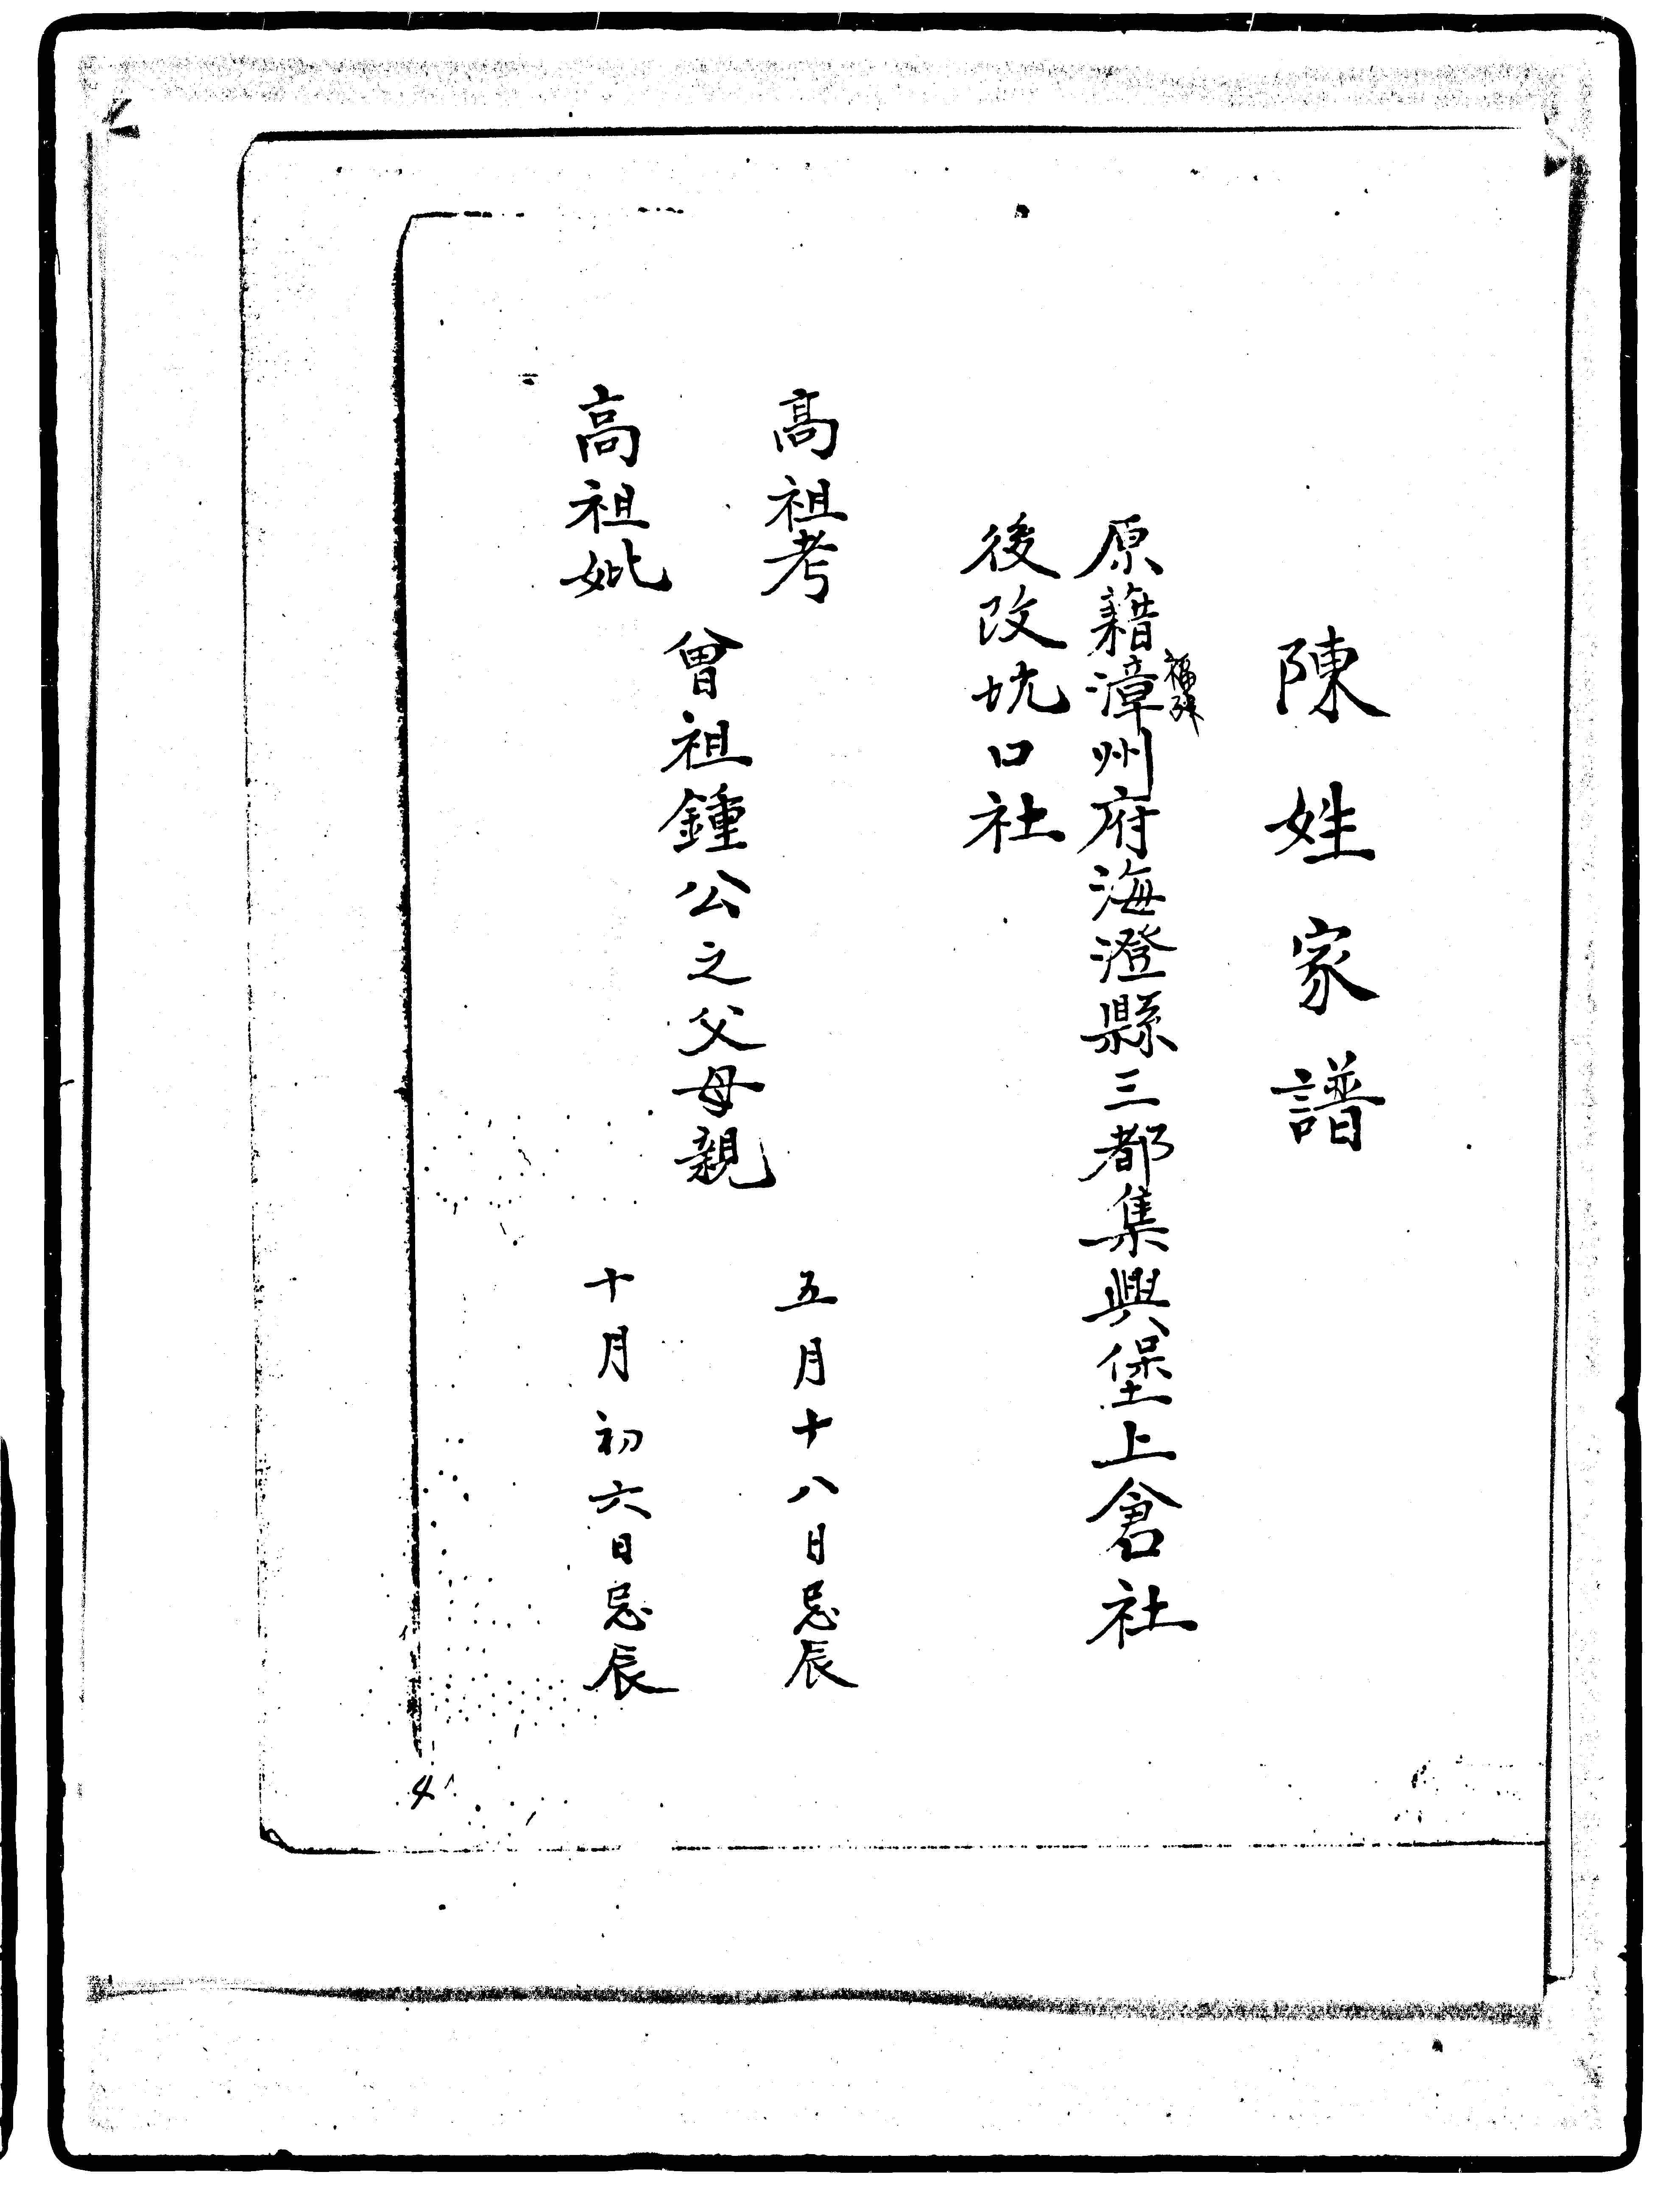 陳姓家譜
福建
原籍漳州府海澄縣三都集興堡上倉社
後改坑口社
高祖考
五月十八日忌辰
曾祖鍾公之父母親
高祖妣
十月初六日忌辰
4